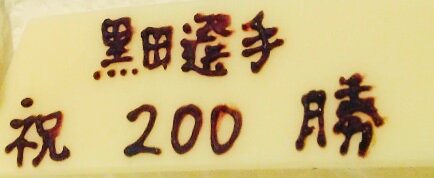 黒田選手
祝 200 勝